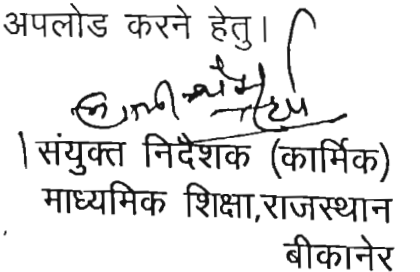 अपलोड करने हेतु।
संयुक्त निदेशक (कार्मिक)
माध्यमिक शिक्षा,राजस्थान
बीकानेर